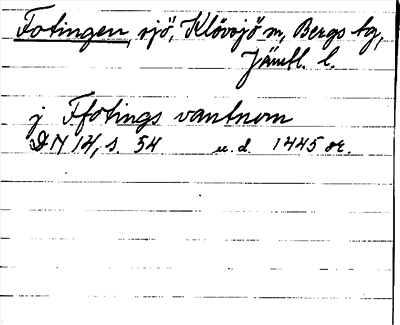 Fotingen, sjö, Klövsjö sn, Bergs tg,
Jämtl. l.
j Ffotings vantnom
DN 14, s. 54 u.d. 1445 or.